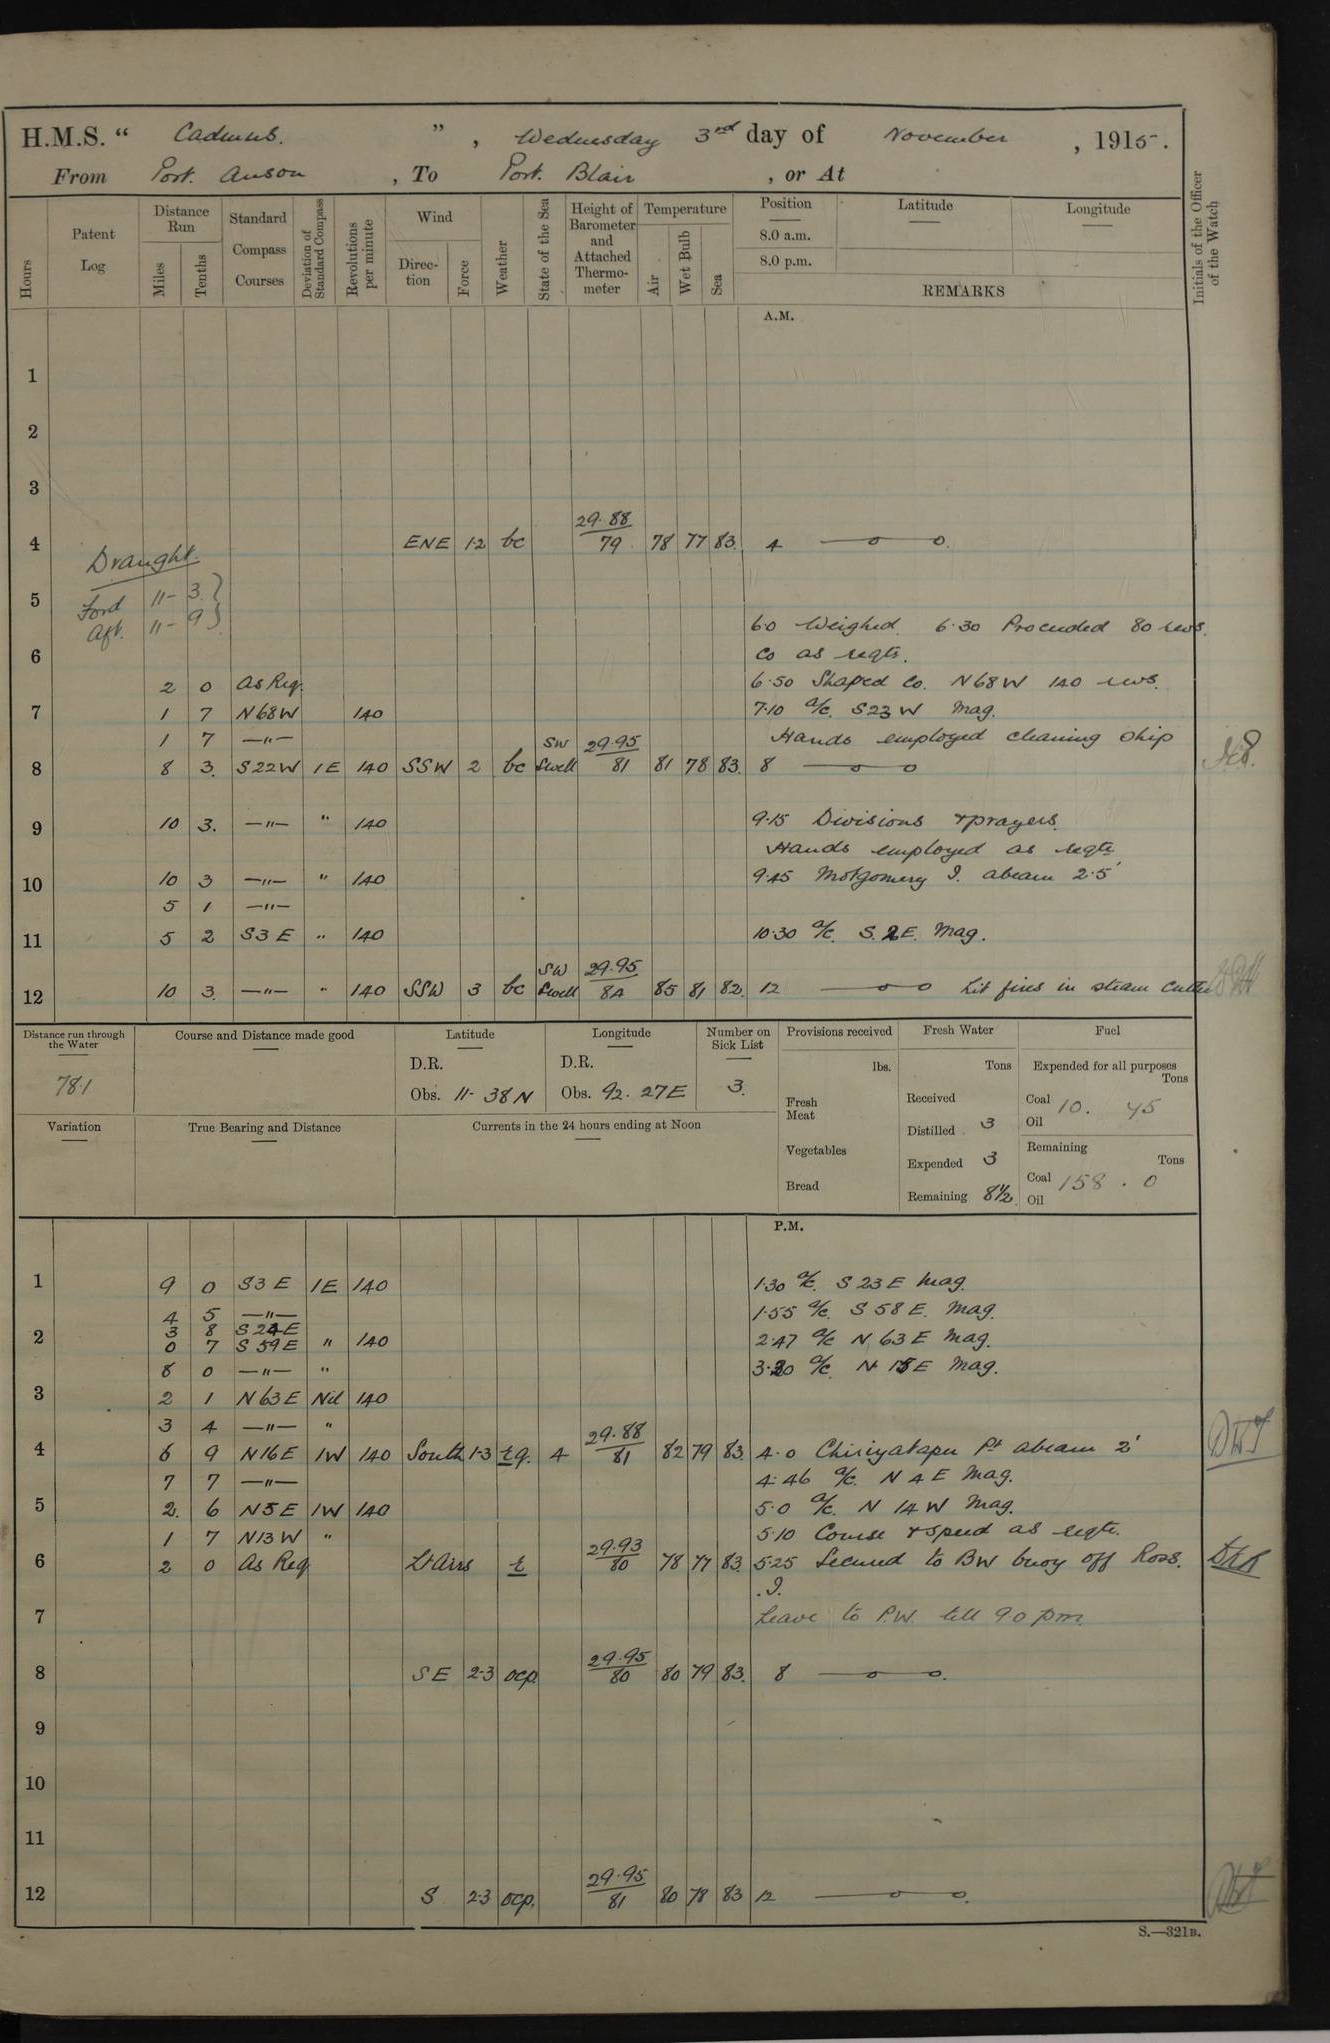 H.M.S. “ Cadmus. ” , Wednesday 3rd day of November , 1915.
From Port. Anson , To Port. Blair , or At
Hours
Patent Log
Distance Run
Miles
Tenths
Standard Compass Courses
Deviation of Standard Compass
Revolutions per minute
Wind
Direction
Force
Weather
State of the Sea
Height of Barometer and Attached Thermometer
Temperature
Air
Wet Bulb
Sea
Position
8.0 a.m.
8.0 p.m.
Latitude
Longitude
REMARKS
Initials of the Officer of the Watch
A.M.
1
2
3
4 ENE 1·2 bc 29·88 / 79 78 77 83. 4 —o—o.
Draught.
5 Ford 11- 3 }
Aft. 11- 9 }
6·0 Weighed. 6·30 Proceeded 80 revs.
6 Co as reqte.
2 0 As Req. 6·50 Shaped Co. N68W 140 revs.
7 1 7 N68W 140 7·10 a/c. S23W Mag.
1 7 —"— Hands employed cleaning ship
8 8 3. S22W 1E 140 SSW 2 bc SW Swell 29·95 / 81 81 78 83. 8 —o—o
9 10 3. —"— " 140 9·15 Divisions & prayers.
Hands employed as reqte
10 10 3 —"— " 140 9·45 Motgomery I. abeam 2·5'
5 1 —"—
11 5 2 S3E " 140 10·30 a/c. S.2E. Mag.
12 10 3. —"— " 140 SSW 3 bc SW Swell 29·95 / 84 85 81 82. 12 —o—o Lit fires in steam cutter
Distance run through the Water
78·1
Course and Distance made good
Latitude
D.R.
Obs. 11- 38 N
Longitude
D.R.
Obs. 92. 27 E
Number on Sick List
3.
Provisions received
lbs.
Fresh Meat
Vegetables
Bread
Fresh Water
Tons
Received
Distilled 3
Expended 3
Remaining 8½
Fuel
Expended for all purposes
Tons
Coal 10. 45
Oil
Remaining
Tons
Coal 158 . 0
Oil
Variation
True Bearing and Distance
Currents in the 24 hours ending at Noon
P.M.
1 9 0 S3E 1E 140 1·30 a/c. S23E Mag.
4 5 —"— 1·55 a/c. S 58 E. Mag.
3 8 S24E
2 0 7 S59E " 140 2·47 a/c N 63 E Mag.
8 0 —"— " 3·20 a/c. N 15 E Mag.
3 2 1 N63E Nil 140
3 4 —"— "
4 6 9 N16E 1W 140 South 1-3 tq. 4 29·88 / 81 82 79 83. 4·0 Chiriyatapu Pt abeam 2'
7 7 —"— 4·46 a/c. N 4 E Mag.
5 2. 6 N5E 1W 140 5·0 a/c. N 14 W Mag.
1 7 N13W " 5·10 Course & speed as reqte.
6 2 0 As Req Lt Airs t 29·93 / 80 78 77 83. 5·25 Secured to BW buoy off Ross.
.I.
7 Leave to P.W. till 9·0 pm.
8 SE 2·3 ocp 29·95 / 80 80 79 83. 8 —o—o.
9
10
11
12 S 2·3 ocp. 29·95 / 81 80 78 83 12 —o—o.
S.—321B.